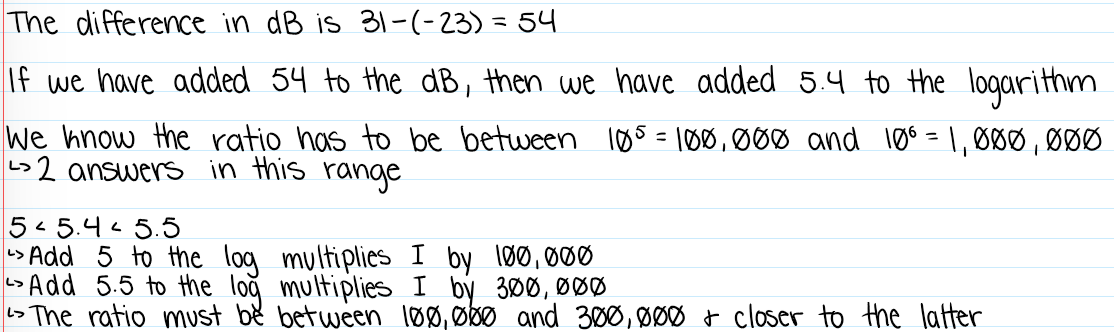 The difference in dB is 31-(-23) = 54
If we have added 54 to the dB, then we have added 5.4 to the logarithm
We know the ratio has to be between 10⁵ = 100,000 and 10⁶ = 1,000,000
↳ 2 answers in this range
5 < 5.4 < 5.5
↳ Add 5 to the log multiplies I by 100,000
↳ Add 5.5 to the log multiplies I by 300,000
↳ The ratio must be between 100,000 and 300,000 & closer to the latter